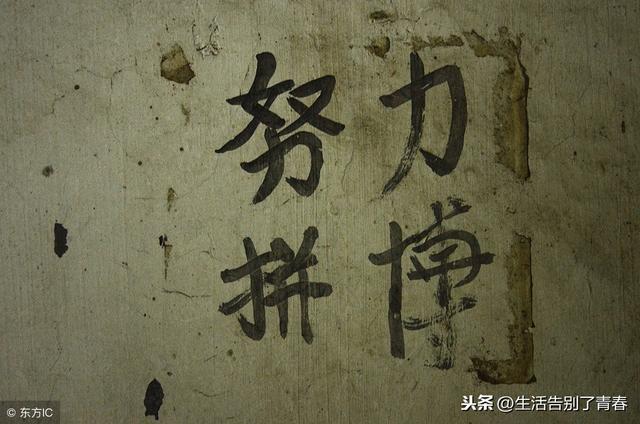 努力
拼博
© 东方IC
头条 @生活告别了青春